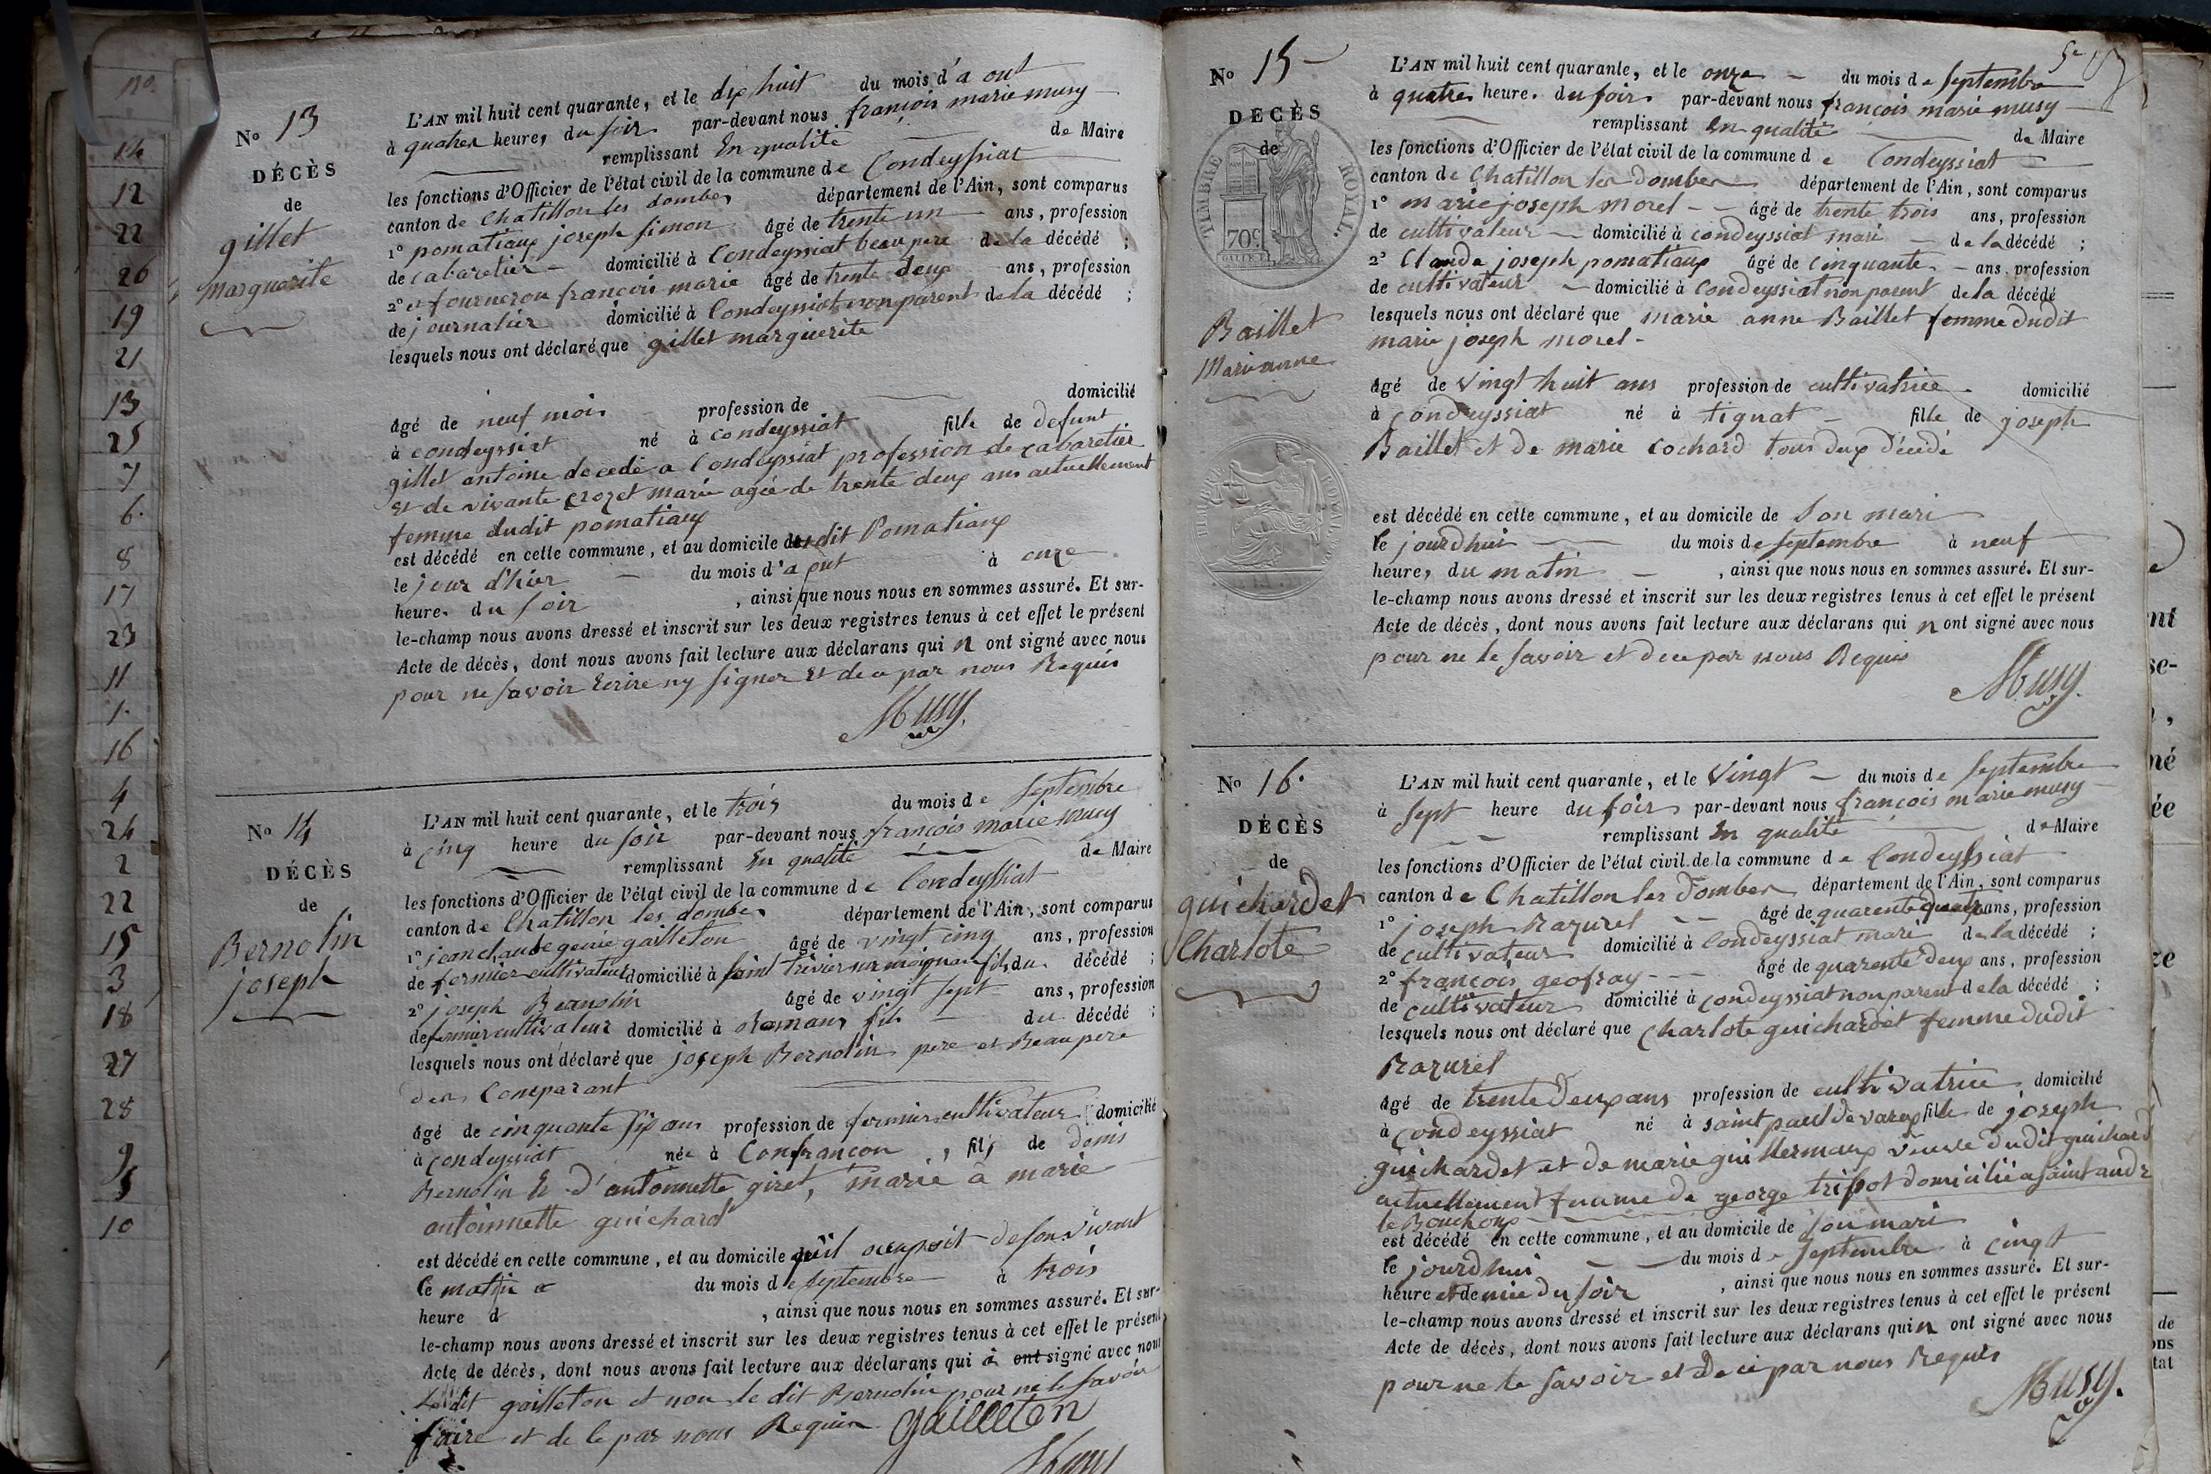 No.
14
12
22
26
19
21
13
25
7
6.
8
17
23
11
1.
16
4
24
2
22
15
3
18
27
28
9
5
10
No 13
DÉCÈS
de
gillet
marguerite
L'AN mil huit cent quarante, et le dix huit du mois d'a out
à quatres heures du soir par-devant nous françois marie musy
remplissant En qualité de Maire
les fonctions d'Officier de l'état civil de la commune de Condeyssiat
canton de Chatillon les dombes département de l'Ain, sont comparus
1° pomatiaux joseph simon âgé de trente un ans, profession
de cabaretier domicilié à Condeyssiat beau pere de la décédé ;
2° et fourneron françois marie âgé de trente deux ans, profession
de journalier domicilié à Condeyssiat non parent de la décédé ;
lesquels nous ont déclaré que gillet marguerite
âgé de neuf mois profession de domicilié
à condeyssiat né à condeyssiat fille de defunt
gillet antoine decedé a Condeyssiat profession de cabaretier
et de vivante crozet marie agée de trente deux ans actuellement
femme dudit pomatiaux
est décédé en cette commune, et au domicile dudit Pomatiaux
le jour d'hier du mois d'a out à onze
heure. du soir , ainsi que nous nous en sommes assuré. Et sur-
le-champ nous avons dressé et inscrit sur les deux registres tenus à cet effet le présent
Acte de décès, dont nous avons fait lecture aux déclarans qui n ont signé avec nous
pour ne savoir Ecrire ny signer Et de ce par nous Requis
Musy
No 14
DÉCÈS
de
Bernolin
joseph
L'AN mil huit cent quarante, et le trois du mois de Septembre
à cinq heure du soir par-devant nous françois marie musy
remplissant En qualité de Maire
les fonctions d'Officier de l'état civil de la commune de Condeyssiat
canton de Chatillon les dombes département de l'Ain, sont comparus
1° jean claude genie gailleton âgé de vingt cinq ans, profession
de fermier cultivateur domicilié à saint trivier sur moignans fils du décédé ;
2° joseph Bernolin âgé de vingt sept ans, profession
de fermier cultivateur domicilié à Romans fils du décédé ;
lesquels nous ont déclaré que joseph Bernolin pere et Beau pere
des Comparant
âgé de cinquante six ans profession de fermier cultivateur domicilié
à condeyssiat née à Confrancon , fils de denis
Bernolin Et d'antoinette giret, marié à marie
antoinette guichard
est décédé en cette commune, et au domicile qu'il occupoit de son vivant
le matin a du mois de septembre à trois
heure d , ainsi que nous nous en sommes assuré. Et sur-
le-champ nous avons dressé et inscrit sur les deux registres tenus à cet effet le présent
Acte de décès, dont nous avons fait lecture aux déclarans qui a ont signé avec nous
Le dit gailleton et non le dit Bernolin pour ne le savoir
faire et de le par nous Requis gailleton
Musy
No 15
DÉCÈS
de
TIMBRE ROYAL.
70 c.
Baillet
Marianne
L'AN mil huit cent quarante, et le onze du mois de Septembre
à quatres heure. du soir. par-devant nous françois marie musy
remplissant En qualité de Maire
les fonctions d'Officier de l'état civil de la commune de Condeyssiat
canton de Chatillon les dombes département de l'Ain, sont comparus
1° marie joseph morel âgé de trente trois ans, profession
de cultivateur domicilié à condeyssiat mari de la décédé ;
2° Claude joseph pomatiaux âgé de cinquante ans, profession
de cultivateur domicilié à Condeyssiat non parent de la décédé
lesquels nous ont déclaré que marie anne Baillet femme dudit
marie joseph morel
âgé de vingt huit ans profession de cultivatrice domicilié
à condeyssiat né à tignat fille de joseph
Baillet et de marie cochard tous deux décédé
est décédé en cette commune, et au domicile de Son mari
le jourdhui du mois de septembre à neuf
heure, du matin , ainsi que nous nous en sommes assuré. Et sur-
le-champ nous avons dressé et inscrit sur les deux registres tenus à cet effet le présent
Acte de décès, dont nous avons fait lecture aux déclarans qui n ont signé avec nous
pour ne le savoir et de ce par nous Requis
Musy
No 16.
DÉCÈS
de
guichardet
Charlote
L'AN mil huit cent quarante, et le vingt du mois de Septembre
à sept heure du soir par-devant nous françois marie musy
remplissant En qualité de Maire
les fonctions d'Officier de l'état civil de la commune de Condeyssiat
canton de Chatillon les Dombes département de l'Ain, sont comparus
1° joseph Razurel âgé de quarente quatre ans, profession
de cultivateur domicilié à Condeyssiat mari de la décédé ;
2° françois geofray âgé de quarente deux ans, profession
de cultivateur domicilié à condeyssiat non parent de la décédé ;
lesquels nous ont déclaré que Charlote guichardet femme dudit
Razurel
âgé de trente deux ans profession de cultivatrice domicilié
à Condeyssiat né à saint paul de varax fille de joseph
guichardet et de marie guillermaux veuve dudit guichard
actuellement femme de george tripot domicilié a saint andr
le Bouchoux
est décédé en cette commune, et au domicile de son mari
le jourdhui du mois de Septembre à cinqt
heure et demie du soir , ainsi que nous nous en sommes assuré. Et sur-
le-champ nous avons dressé et inscrit sur les deux registres tenus à cet effet le présent
Acte de décès, dont nous avons fait lecture aux déclarans qui n ont signé avec nous
pour ne le savoir et de ce par nous Requis
Musy